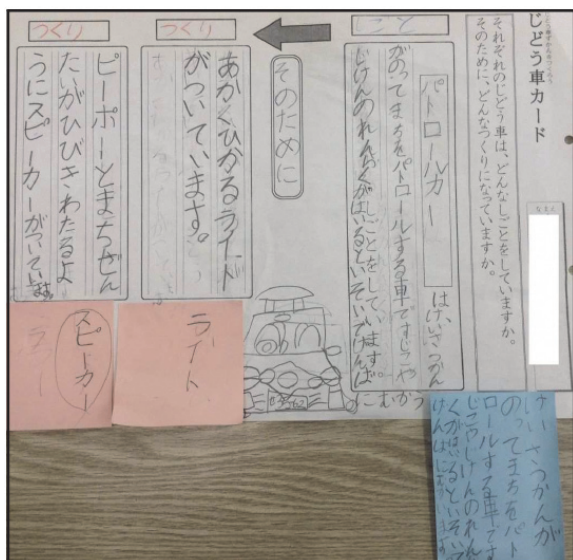 じどう車カード
それぞれのじどう車は、どんなしごとをしていますか。
そのために、どんなつくりになっていますか。
なまえ
しごと
パトロールカー
は、けいさつかん
がのってまちをパトロールする車ですじこや
じけんのれんらくがはいるといそいでげんば
にむかう
しごとをしています。
そのために
つくり
あかくひかるライト
がついています。
つくり
ピーポーとまちぜん
たいがひびきわたるよ
うにスピーカーがついています。
ライト
スピーカー
けいさつかんが
のってまちをパト
ロールする車です
じこやじけんのれん
らくがはいるといそい